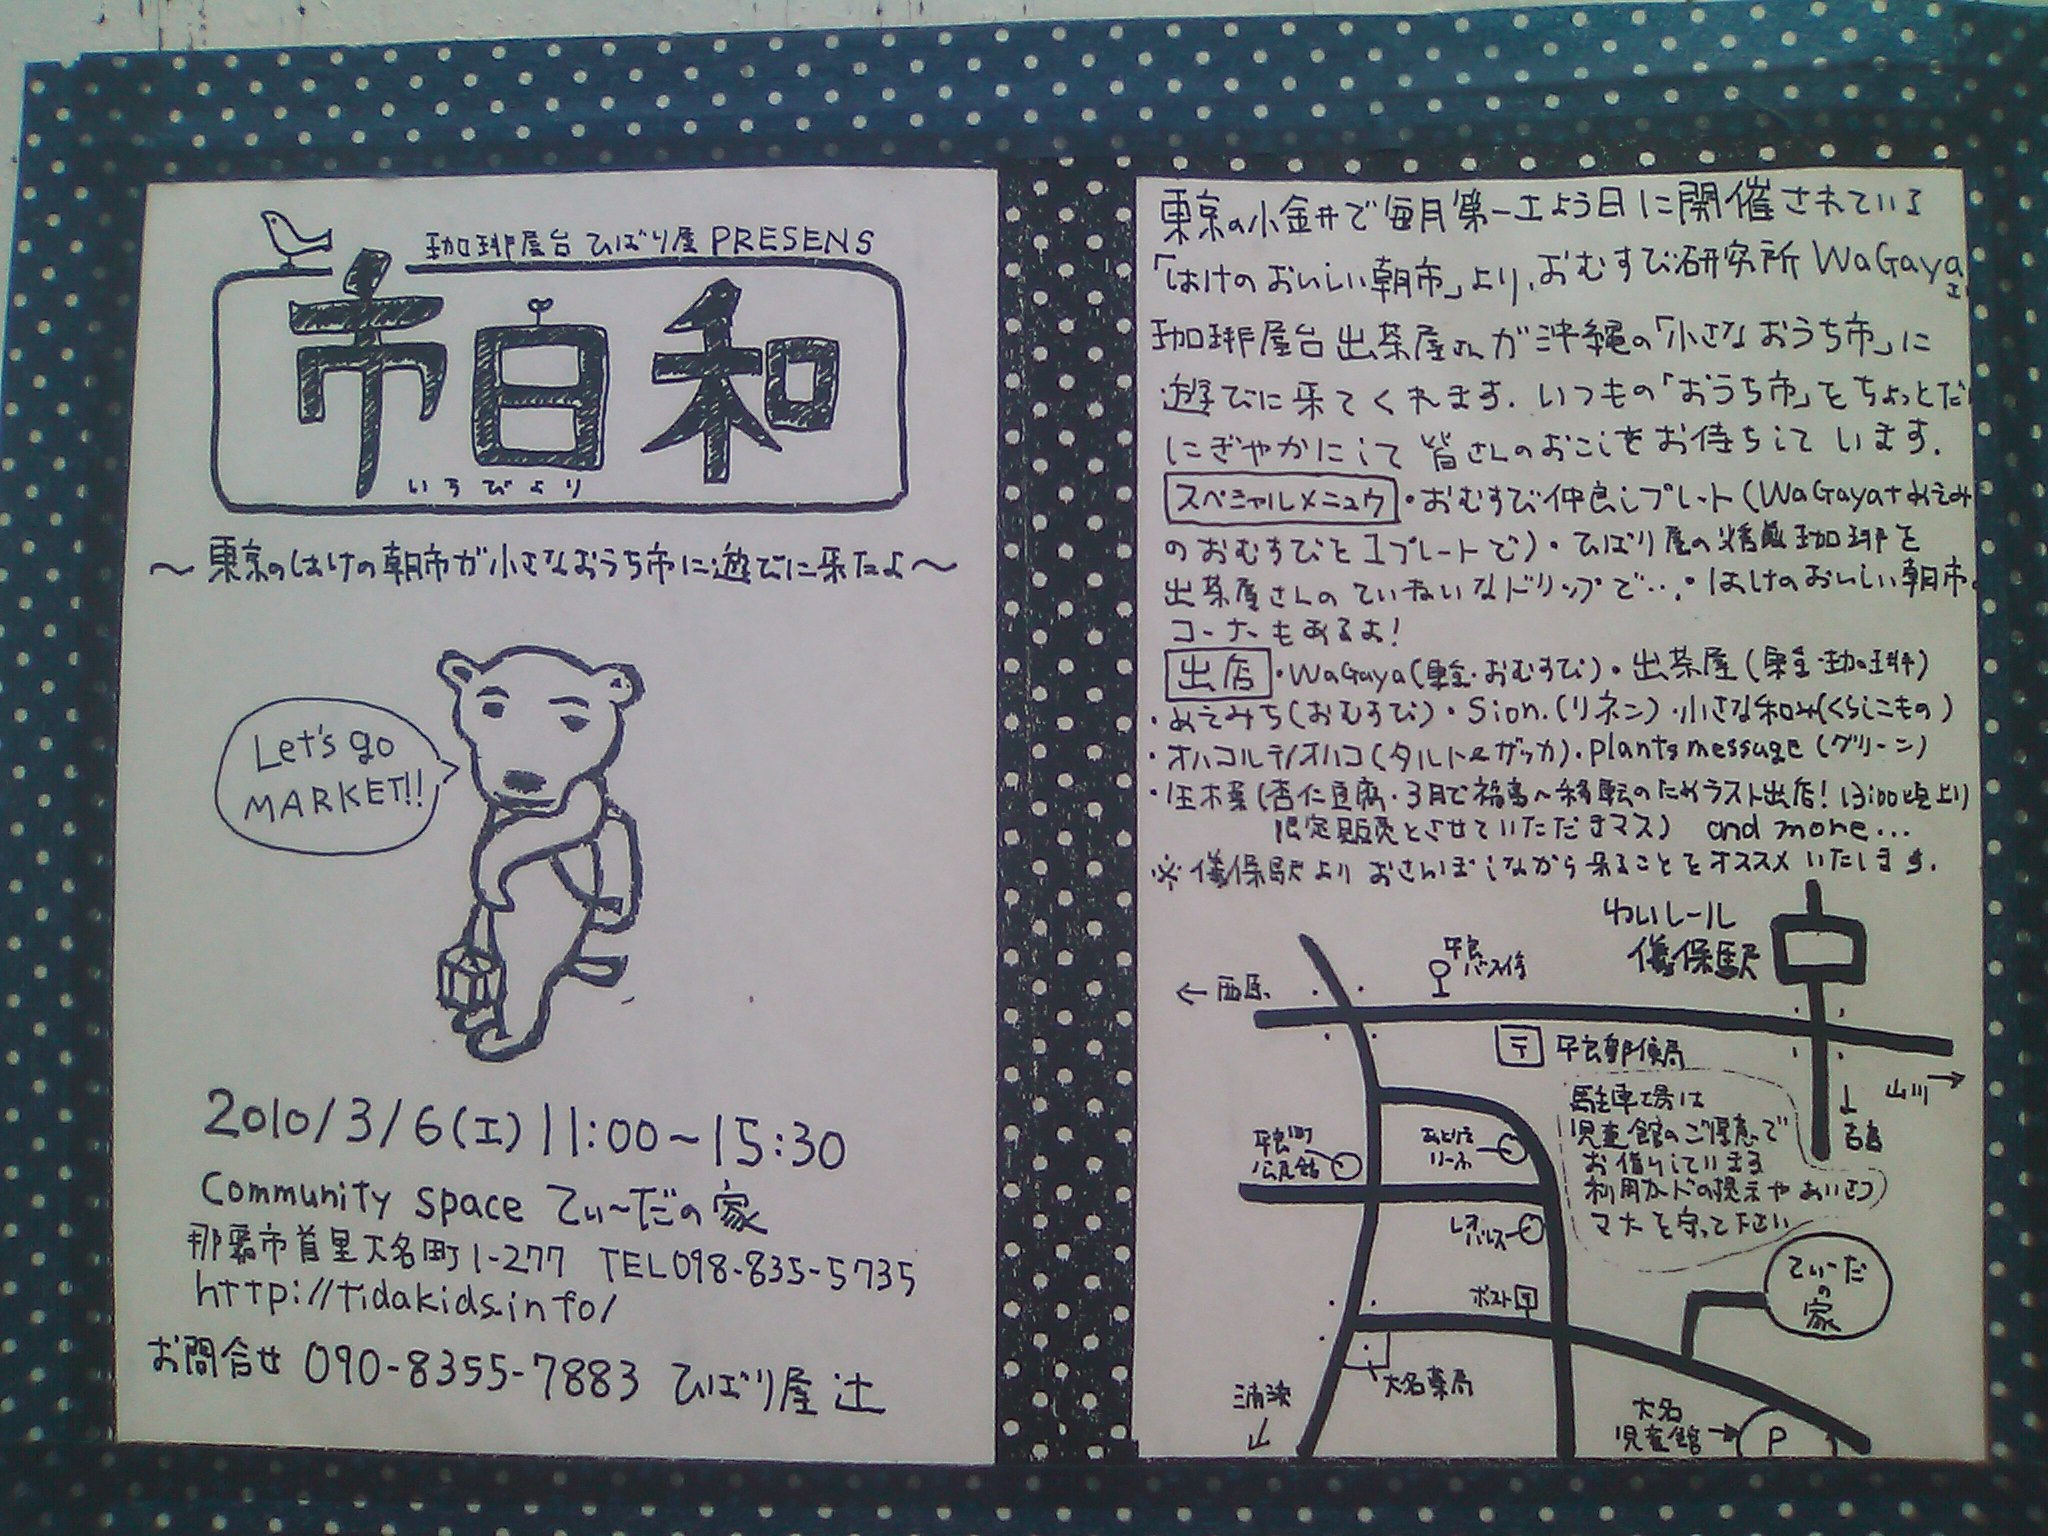 珈琲屋台ひばり屋 PRESENS
市日和
いちびより
〜東京のはけの朝市が小さなおうち市に遊びに来たよ〜
Let's go
MARKET!!
2010/3/6(土) 11:00〜15:30
Community space てぃ〜だの家
那覇市首里大名町1-277 TEL098-835-5735
http://tidakids.info/
お問合せ 090-8355-7883 ひばり屋 辻
東京の小金井で毎月第一土よう日に開催されている
「はけのおいしい朝市」より、おむすび研究所 WaGaya
珈琲屋台出茶屋さんが沖縄の「小さなおうち市」に
遊びに来てくれます. いつもの「おうち市」をちょっとだ
にぎやかにして 皆さんのおこしをお待ちして います.
スペシャルメニュウ ・おむすび仲良しプレート(WaGaya+みえみ
のおむすびを1プレートで)・ひばり屋の焙煎珈琲を
出茶屋さんのていねいなドリップで…・はけのおいしい朝市
コーナーもあるよ!
出店 ・WaGaya(東金・おむすび)・出茶屋(東金・珈琲)
・みえみち(おむすび)・Sion.(リネン)・小さな和み(くらしこもの)
・オハコルテ/オハコ(タルトとザッカ).plants message(グリーン)
(杏仁豆腐・3月で福島へ移転のためラスト出店! 13:00頃より
限定販売とさせていただきマス) and more…
※儀保駅より おさんぽしながら来ることをオススメいたします.
ゆいレール
儀保駅
平良バス停
←西原
〒 平良郵便局
山川→
↓古島
駐車場は
児童館のご厚意で
お借りしています
利用カードの提示やあいさつ
マナーを守って下さい
平良町公民館
レオパレス
ポスト〒
てぃ〜だの家
大名薬局
浦添
大名児童館→
P